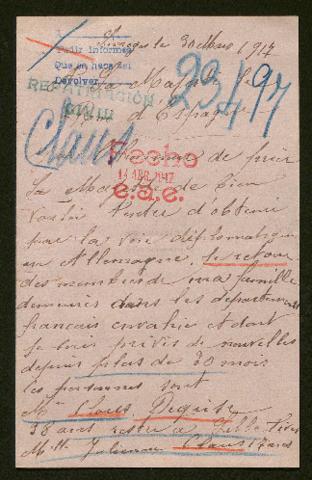 le 30 Mars 1917
Pedir informes
Que se haga así
Devolver
A Sa Majesté
REPATRIACIÓN
CIVIL
d'Espagne
23/97
Claus
Hecho
14 ABR. 1917
e.s.e.
de prier
Sa Majesté de bien
vouloir tenter d'obtenir
par la voie diplomatique
en Allemagne, le retour
des membres de ma famille
demeurés dans les départements
français envahis et dont
je suis privé de nouvelles
depuis plus de 30 mois
les personnes sont
Me Claus
38 ans restée à
Mlle Julienne Claus 17 ans